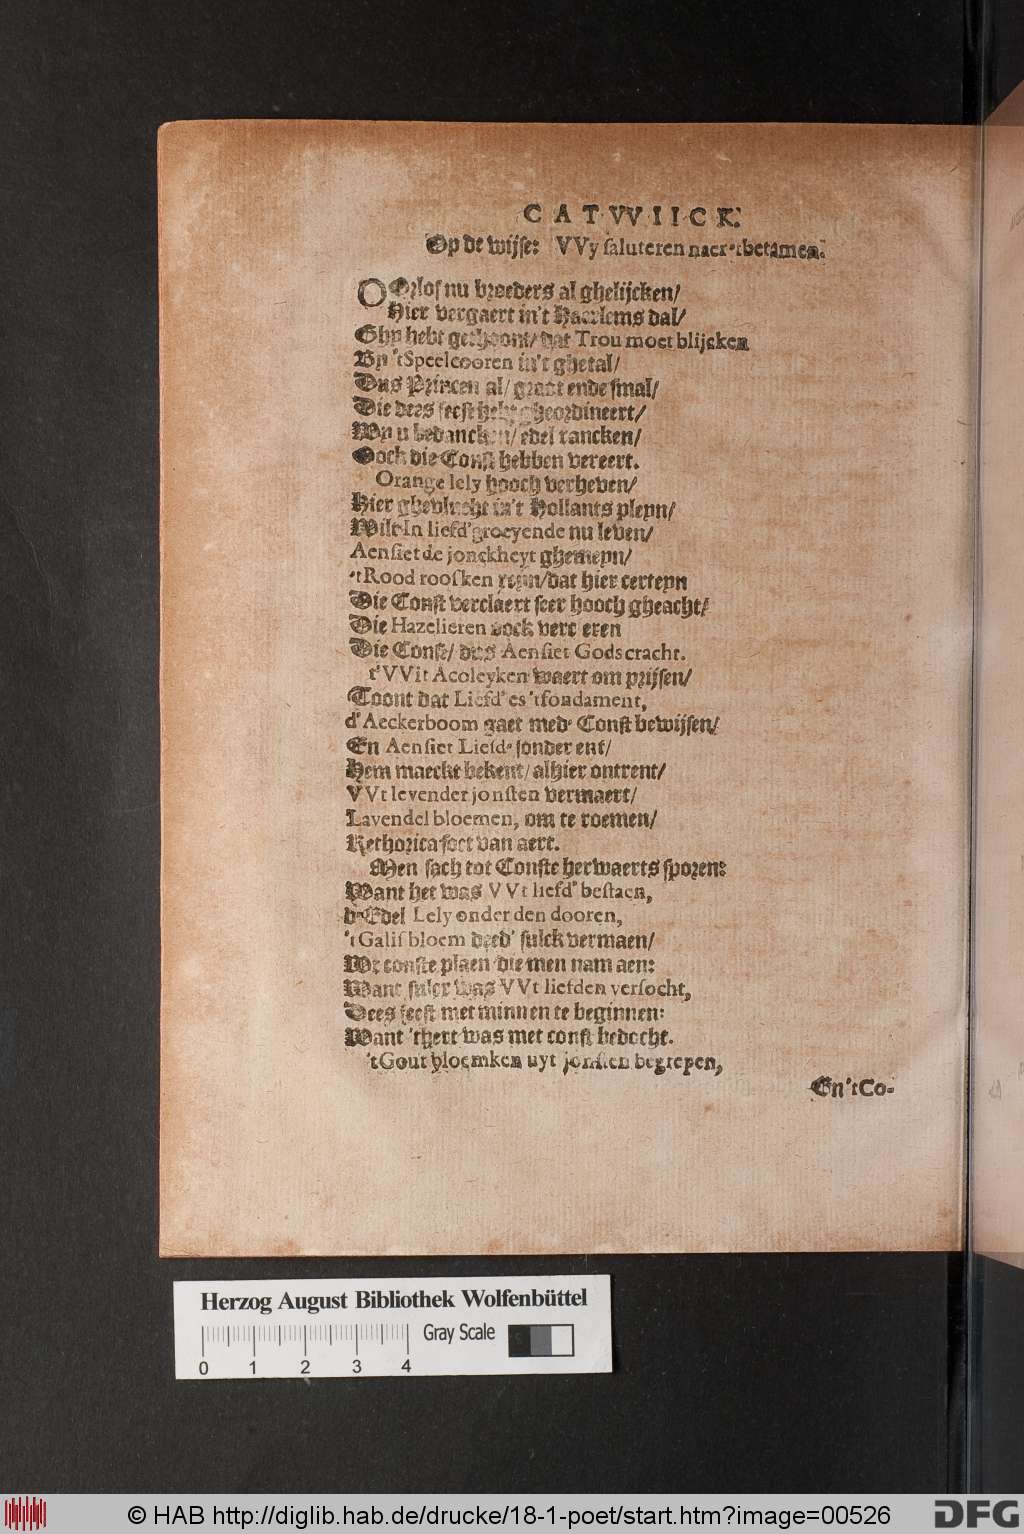 CATVVIICK.
Op de wijse: VVy saluteren naer 't betamen.
OOrlof nu broeders al ghelijcken/
Hier vergaert in't Haerlems dal/
Ghy hebt gethoont/ dat Trou moet blijcken
By 'tSpeelcooren in't ghetal/
Dus Princen al/ groot ende smal/
Die dees feest hebt gheordineert/
Wy u bedancken/ edel rancken/
Oock die Const hebben vereert.
Orange lely hooch verheven/
Hier ghevlucht in't Hollants pleyn/
Wilt In liefd' groeyende nu leven/
Aensiet de jonckheyt ghemeyn/
'tRood roosken reyn/ dat hier certeyn
Die Const verclaert seer hooch gheacht/
Die Hazelieren oock vercieren
Die Const/ dus Aensiet Gods cracht.
t'VVit Acoleyken waert om prijsen/
Toont dat Liefd' es 'tfondament,
d'Aeckerboom gaet med' Const bewijsen/
En Aensiet Liefd' sonder ent/
Hem maeckt bekent/ alhier ontrent/
VVt levender jonsten vermaert/
Lavendel bloemen, om te roemen/
Rethorica soet van aert.
Men sach tot Conste herwaerts sporen:
Want het was VVt liefd' bestaen,
d'Edel Lely onder den dooren,
'tGalisbloem deed' sulck vermaen/
Wt conste plaen die men nam aen:
Want sulcx was VVt liefden versocht,
Dees feest met minnen te beginnen:
Want 'thert was met const bedocht.
'tGout bloemken uyt jonsten begrepen,
En 'tCo-
Herzog August Bibliothek Wolfenbüttel
0 1 2 3 4
Gray Scale
© HAB http://diglib.hab.de/drucke/18-1-poet/start.htm?image=00526
DFG